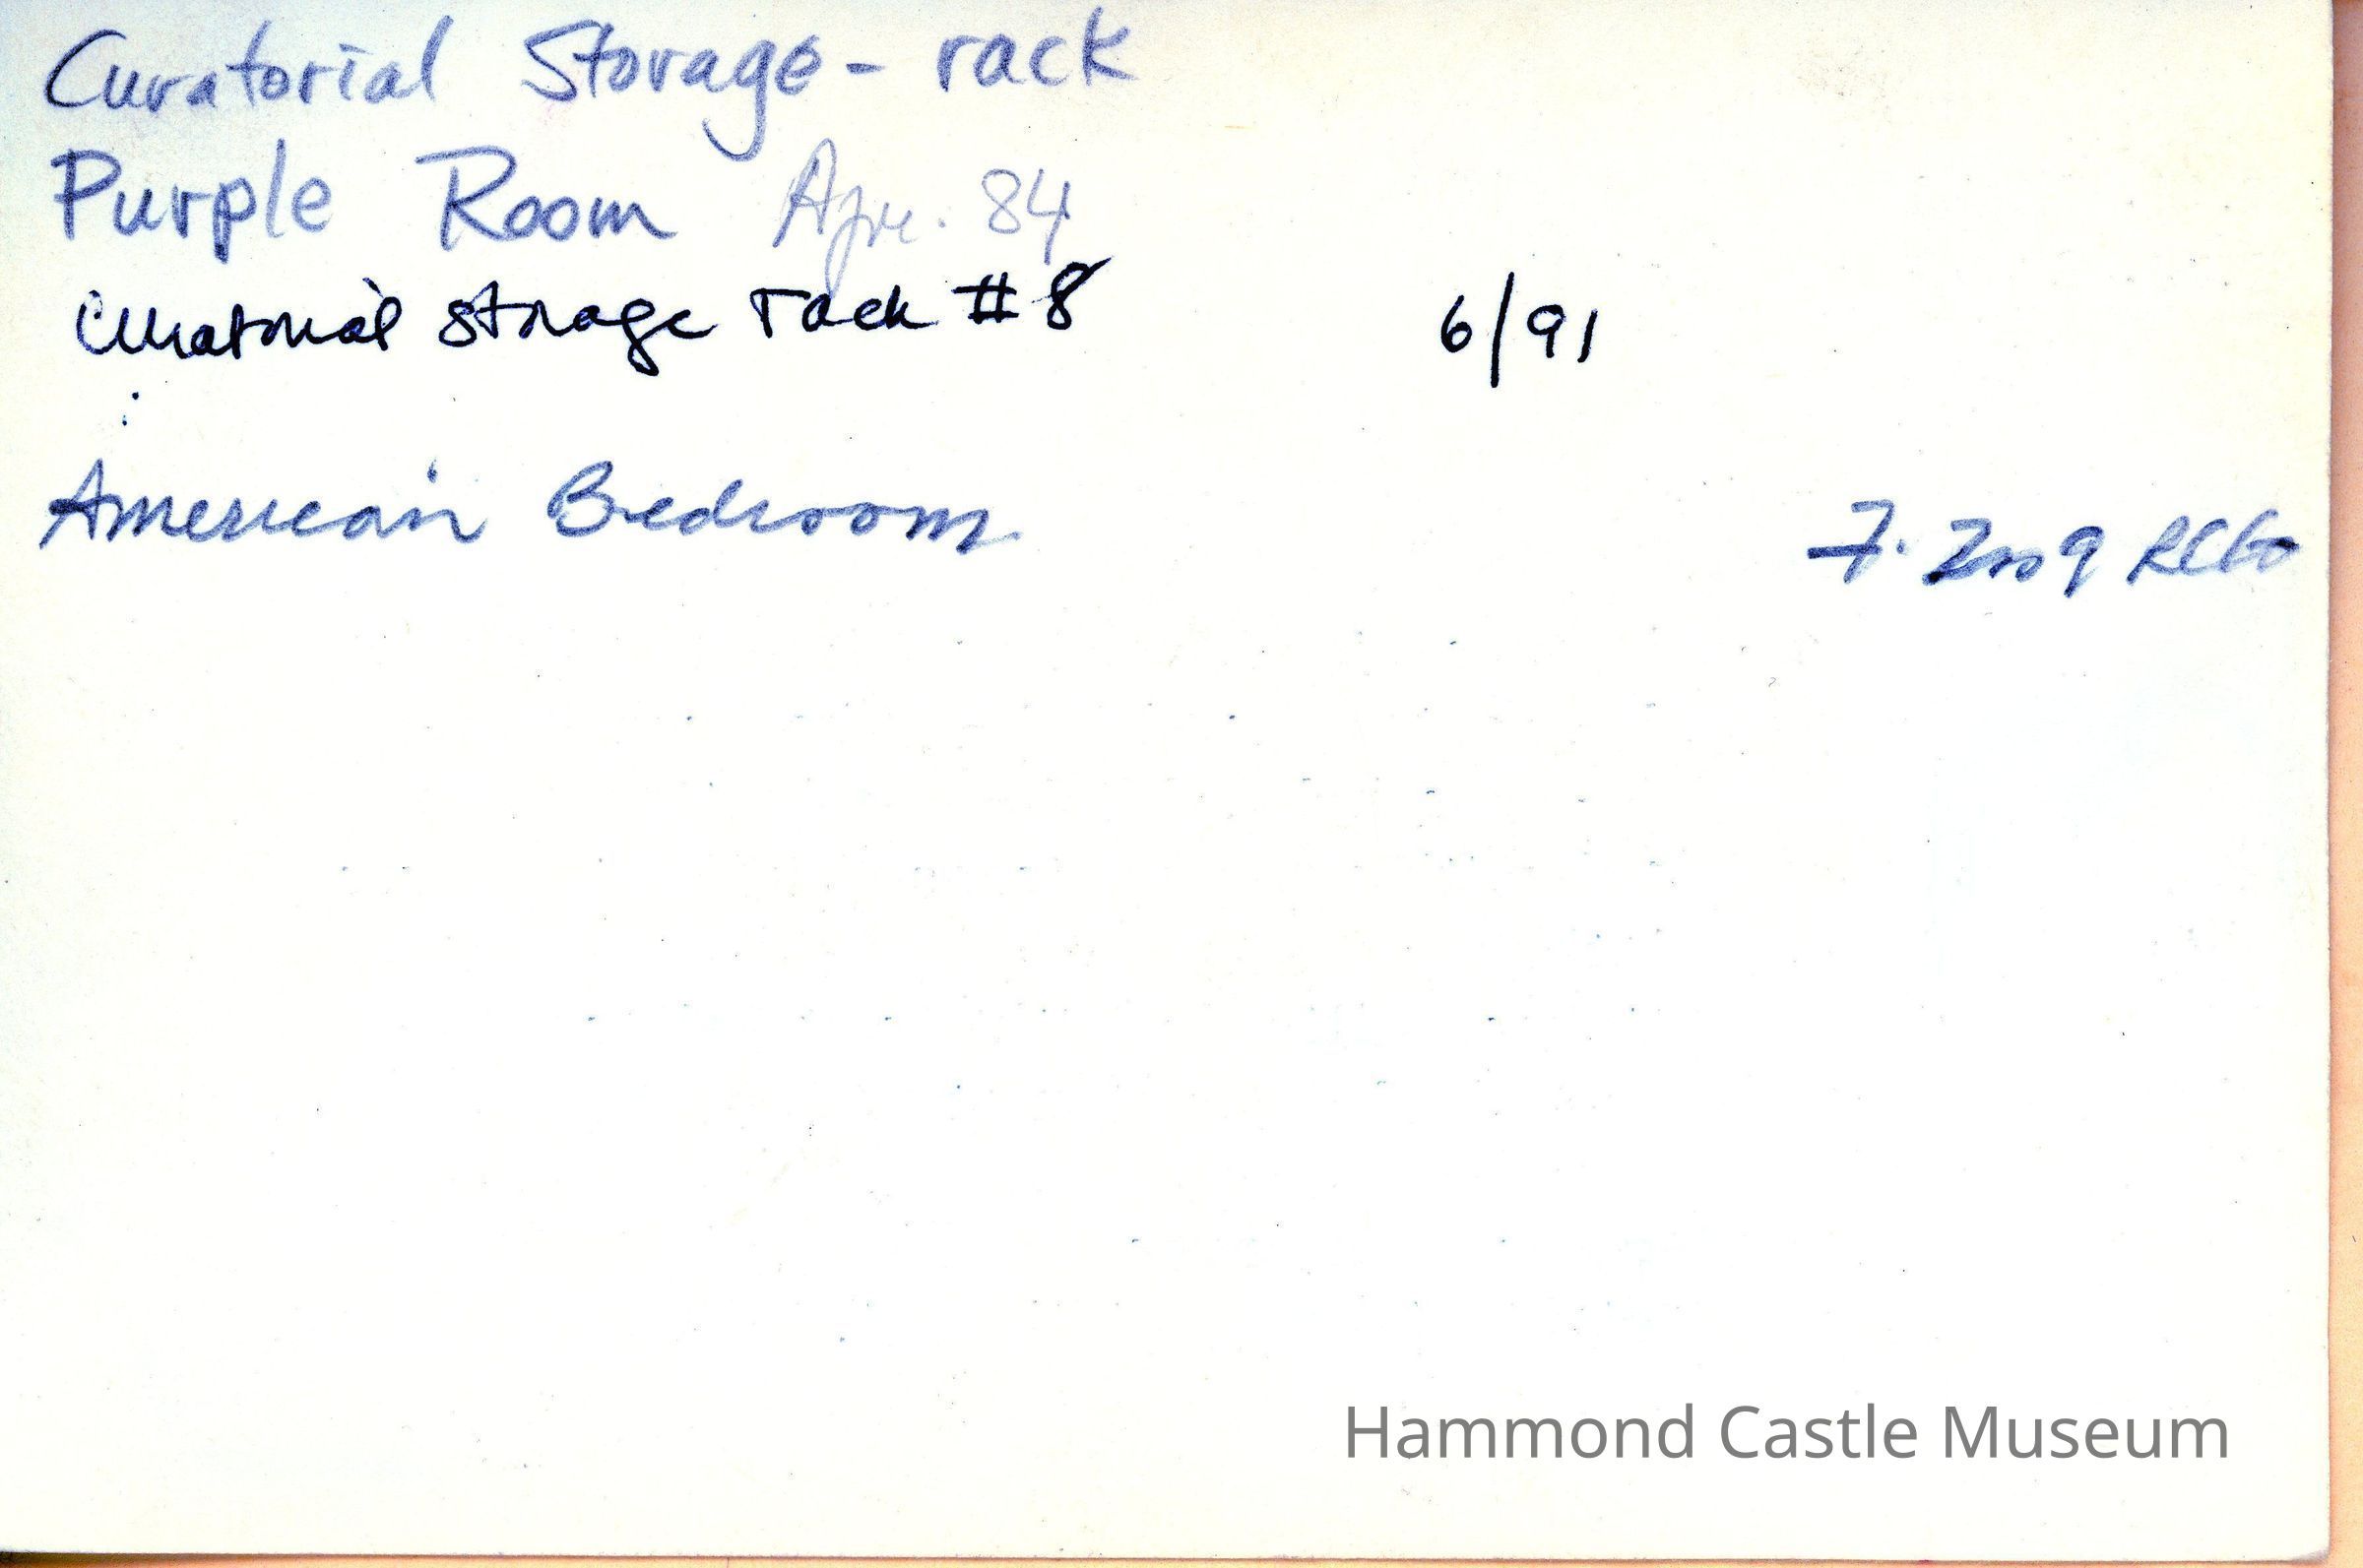 Curatorial Storage - rack
Purple Room Apr. 84
Curatorial storage rack #8 6/91
American Bedroom 7. 2009 RCG
Hammond Castle Museum